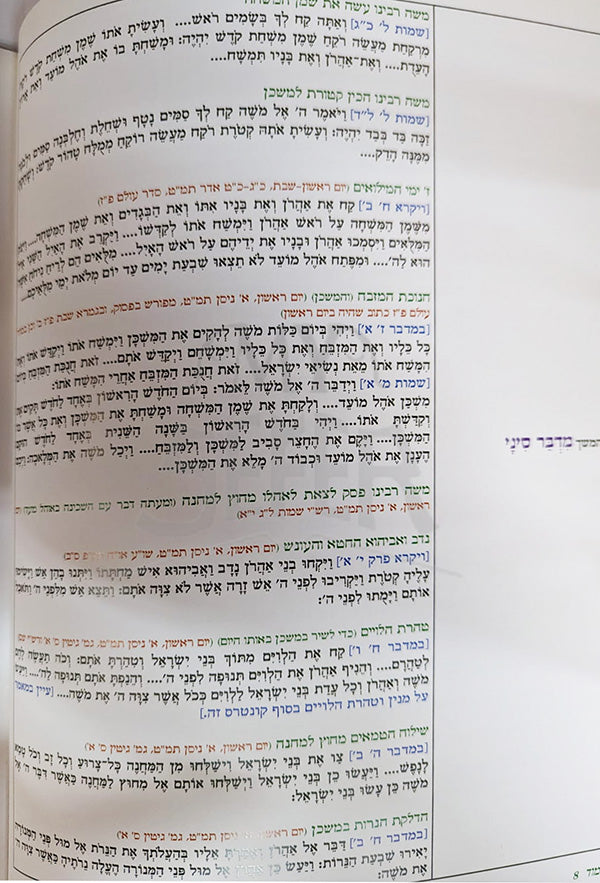 משה רבינו עשה את שמן המשחה
[שמות ל' כ"ג] וְאַתָּה קַח לְךָ בְּשָׂמִים רֹאשׁ.... וְעָשִׂיתָ אֹתוֹ שֶׁמֶן מִשְׁחַת קֹדֶשׁ
מִרְקַחַת מַעֲשֵׂה רֹקֵחַ שֶׁמֶן מִשְׁחַת קֹדֶשׁ יִהְיֶה: וּמָשַׁחְתָּ בוֹ אֶת אֹהֶל מוֹעֵד וְאֵת
הָעֵדֻת.... וְאֶת־אַהֲרֹן וְאֶת בָּנָיו תִּמְשָׁח....
משה רבינו הכין קטורת למשכן
[שמות ל' ל"ד] וַיֹּאמֶר ה' אֶל מֹשֶׁה קַח לְךָ סַמִּים נָטָף וּשְׁחֵלֶת וְחֶלְבְּנָה סַמִּים
זַכָּה בַּד בְּבַד יִהְיֶה: וְעָשִׂיתָ אֹתָהּ קְטֹרֶת רֹקַח מַעֲשֵׂה רוֹקֵחַ מְמֻלָּח טָהוֹר קֹדֶשׁ:
מִמֶּנָּה הָדֵק....
ז' ימי המילואים (יום ראשון-שבת, כ"ג-כ"ט אדר תמ"ט, סדר עולם פ"ז)
[ויקרא ח' ב'] קַח אֶת אַהֲרֹן וְאֶת בָּנָיו אִתּוֹ וְאֵת הַבְּגָדִים וְאֵת שֶׁמֶן הַמִּשְׁחָה....
מִשֶּׁמֶן הַמִּשְׁחָה עַל רֹאשׁ אַהֲרֹן וַיִּמְשַׁח אֹתוֹ לְקַדְּשׁוֹ.... וַיַּקְרֵב אֶת הָאַיִל הַשֵּׁנִי
הַמִּלֻּאִים וַיִּסְמְכוּ אַהֲרֹן וּבָנָיו אֶת יְדֵיהֶם עַל רֹאשׁ הָאָיִל.... מִלֻּאִים הֵם לְרֵיחַ נִיחֹחַ
הוּא לַה'.... וּמִפֶּתַח אֹהֶל מוֹעֵד לֹא תֵצְאוּ שִׁבְעַת יָמִים עַד יוֹם מְלֹאת יְמֵי מִלֻּאֵיכֶם...
חנוכת המזבח (והמשכן) (יום ראשון, א' ניסן תמ"ט, מפורש בפסוק, ובגמרא שבת פ"ז
עולם פ"ז כתוב שהיה ביום ראשון)
[במדבר ז' א'] וַיְהִי בְּיוֹם כַּלּוֹת מֹשֶׁה לְהָקִים אֶת הַמִּשְׁכָּן וַיִּמְשַׁח אֹתוֹ וַיְקַדֵּשׁ אֹתוֹ וְאֶת
כָּל כֵּלָיו וְאֶת הַמִּזְבֵּחַ וְאֶת כָּל כֵּלָיו וַיִּמְשָׁחֵם וַיְקַדֵּשׁ אֹתָם.... זֹאת חֲנֻכַּת הַמִּזְבֵּחַ
הִמָּשַׁח אֹתוֹ מֵאֵת נְשִׂיאֵי יִשְׂרָאֵל.... זֹאת חֲנֻכַּת הַמִּזְבֵּחַ אַחֲרֵי הִמָּשַׁח אֹתוֹ:
[שמות מ' א'] וַיְדַבֵּר ה' אֶל מֹשֶׁה לֵּאמֹר: בְּיוֹם הַחֹדֶשׁ הָרִאשׁוֹן בְּאֶחָד לַחֹדֶשׁ תָּקִים אֶת
מִשְׁכַּן אֹהֶל מוֹעֵד.... וְלָקַחְתָּ אֶת שֶׁמֶן הַמִּשְׁחָה וּמָשַׁחְתָּ אֶת הַמִּשְׁכָּן וְאֶת כָּל אֲשֶׁר
וְקִדַּשְׁתָּ אֹתוֹ.... וַיְהִי בַּחֹדֶשׁ הָרִאשׁוֹן בַּשָּׁנָה הַשֵּׁנִית בְּאֶחָד לַחֹדֶשׁ הוּקַם
הַמִּשְׁכָּן.... וַיָּקֶם אֶת הֶחָצֵר סָבִיב לַמִּשְׁכָּן וְלַמִּזְבֵּחַ.... וַיְכַל מֹשֶׁה אֶת הַמְּלָאכָה:
הֶעָנָן אֶת אֹהֶל מוֹעֵד וּכְבוֹד ה' מָלֵא אֶת הַמִּשְׁכָּן....
משה רבינו פסק לצאת לאהלו מחוץ למחנה (ומעתה דבר עם השכינה באוהל מועד)
ראשון, א' ניסן תמ"ט, רש"י שמות ל"ג י"א)
נדב ואביהוא החטא והעונש (יום ראשון, א' ניסן תמ"ט, שו"ע או"ח תק"פ ס"ב)
[ויקרא פרק י' א'] וַיִּקְחוּ בְנֵי אַהֲרֹן נָדָב וַאֲבִיהוּא אִישׁ מַחְתָּתוֹ וַיִּתְּנוּ בָהֵן אֵשׁ וַיָּשִׂימוּ
עָלֶיהָ קְטֹרֶת וַיַּקְרִיבוּ לִפְנֵי ה' אֵשׁ זָרָה אֲשֶׁר לֹא צִוָּה אֹתָם: וַתֵּצֵא אֵשׁ מִלִּפְנֵי ה' וַתֹּאכַל
אוֹתָם וַיָּמֻתוּ לִפְנֵי ה':
טהרת הלויים (כדי לשיר במשכן באותו היום) (יום ראשון, א' ניסן תמ"ט, גמ' גיטין ס' א' ורש"י שם)
[במדבר ח' ו'] קַח אֶת הַלְוִיִּם מִתּוֹךְ בְּנֵי יִשְׂרָאֵל וְטִהַרְתָּ אֹתָם: וְכֹה תַעֲשֶׂה לָהֶם
לְטַהֲרָם.... וְהֵנִיף אַהֲרֹן אֶת הַלְוִיִּם תְּנוּפָה לִפְנֵי ה'.... וְהֵנַפְתָּ אֹתָם תְּנוּפָה לַה'.... וַיַּעַשׂ
מֹשֶׁה וְאַהֲרֹן וְכָל עֲדַת בְּנֵי יִשְׂרָאֵל לַלְוִיִּם כְּכֹל אֲשֶׁר צִוָּה ה' אֶת מֹשֶׁה.... [עיין במאמר
על מנין וטהרת הלויים בסוף קונטרס זה.]
שילוח הטמאים מחוץ למחנה (יום ראשון, א' ניסן תמ"ט, גמ' גיטין ס' א')
[במדבר ה' ב'] צַו אֶת בְּנֵי יִשְׂרָאֵל וִישַׁלְּחוּ מִן הַמַּחֲנֶה כָּל־צָרוּעַ וְכָל זָב וְכֹל טָמֵא
לָנָפֶשׁ.... וַיַּעֲשׂוּ כֵן בְּנֵי יִשְׂרָאֵל וַיְשַׁלְּחוּ אוֹתָם אֶל מִחוּץ לַמַּחֲנֶה כַּאֲשֶׁר דִּבֶּר ה' אֶל
מֹשֶׁה כֵּן עָשׂוּ בְּנֵי יִשְׂרָאֵל:
הדלקת הנרות במשכן (יום ראשון, א' ניסן תמ"ט, גמ' גיטין ס' א')
[במדבר ח' ב'] דַּבֵּר אֶל אַהֲרֹן וְאָמַרְתָּ אֵלָיו בְּהַעֲלֹתְךָ אֶת הַנֵּרֹת אֶל מוּל פְּנֵי הַמְּנוֹרָה
יָאִירוּ שִׁבְעַת הַנֵּרוֹת: וַיַּעַשׂ כֵּן אַהֲרֹן אֶל מוּל פְּנֵי הַמְּנוֹרָה הֶעֱלָה נֵרֹתֶיהָ כַּאֲשֶׁר צִוָּה ה'
אֶת מֹשֶׁה:
המשך מִדְבַּר סִינַי
עמוד 8